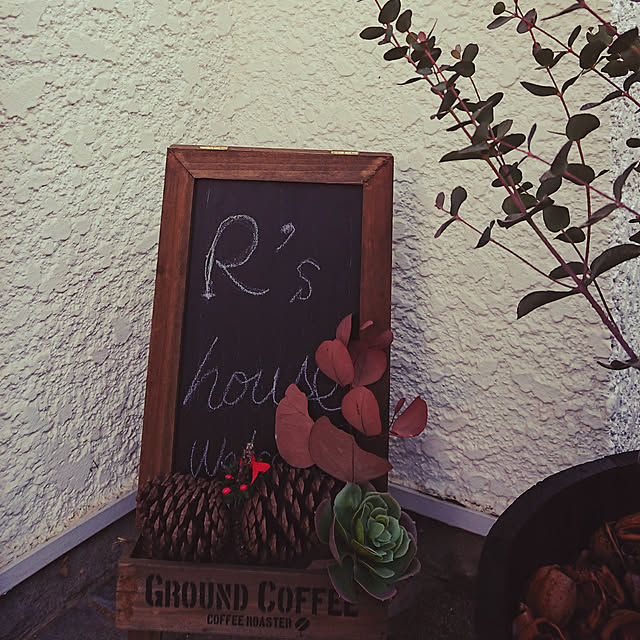 R's
house
GROUND COFFEE
COFFEE ROASTER